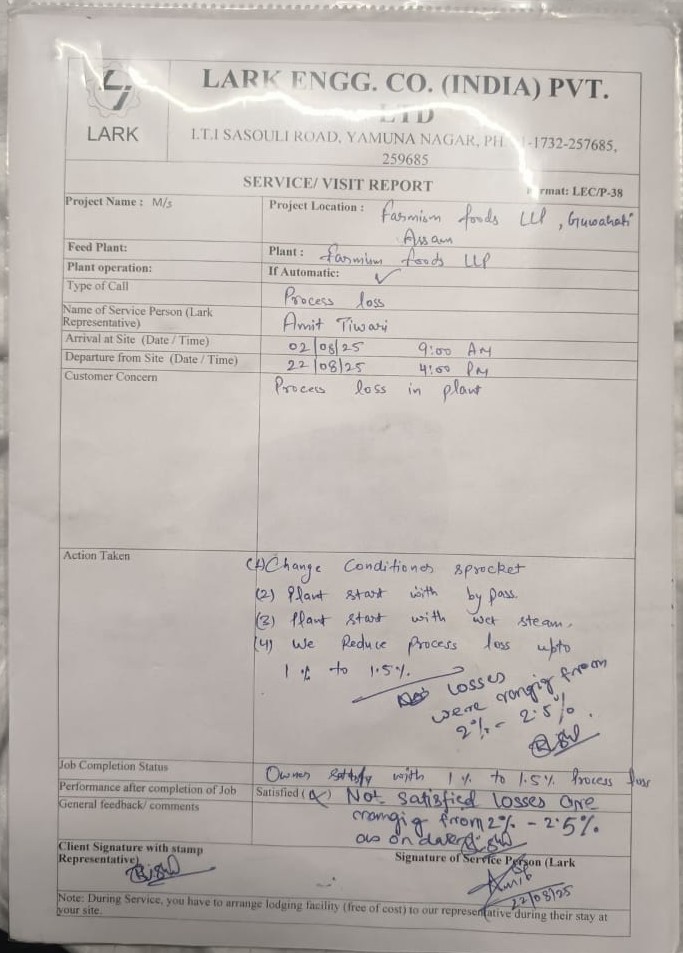 LARK ENGG. CO. (INDIA) PVT.
LTD
LARK
I.T.I SASOULI ROAD, YAMUNA NAGAR, PH -1732-257685,
259685
SERVICE/ VISIT REPORT
rmat: LEC/P-38
Project Name : M/s
Project Location : Farmism foods LLP, Guwahati
Assam
Feed Plant:
Plant : farmium foods LLP
Plant operation:
If Automatic: ✓
Type of Call
Process loss
Name of Service Person (Lark
Representative)
Amit Tiwari
Arrival at Site (Date / Time)
02/08/25 9:00 AM
Departure from Site (Date / Time)
22/08/25 4:00 PM
Customer Concern
Process loss in plant
Action Taken
(1) Change Conditioner sprocket
(2) Plant start with by pass.
(3) Plant start with wet steam.
(4) We Reduce Process loss upto
1 % to 1.5%.
losses
were rangig from
2% - 2.5%.
Job Completion Status
Owner with 1 % to 1.5% Process loss
Performance after completion of Job
Satisfied ( ) Not satisfied losses are
General feedback/ comments
rangig from 2% - 2.5%.
as on date
Client Signature with stamp
Representative)
Signature of Service Person (Lark
Amit
22/08/25
Note: During Service, you have to arrange lodging facility (free of cost) to our representative during their stay at
your site.